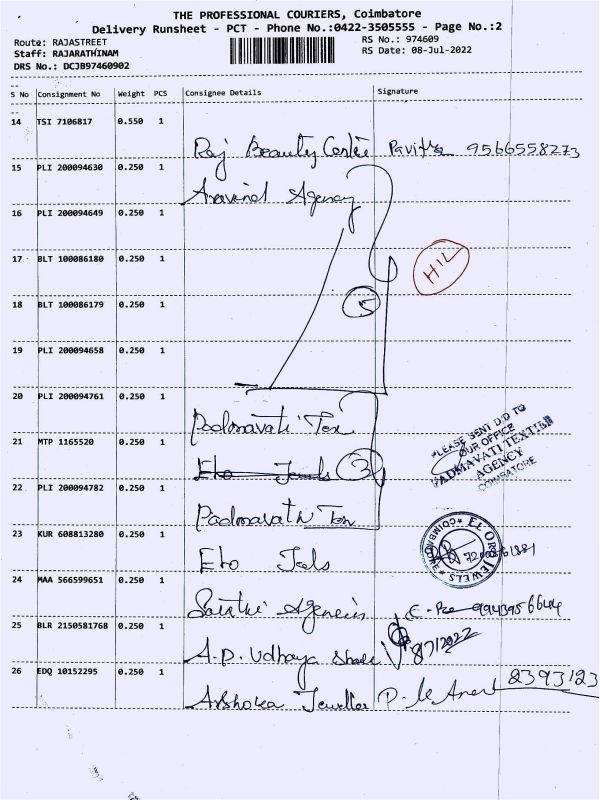 THE PROFESSIONAL COURIERS, Coimbatore
Delivery Runsheet - PCT - Phone No.:0422-3505555 - Page No.:2
Route: RAJASTREET
RS No.: 974609
Staff: RAJARATHINAM
RS Date: 08-Jul-2022
DRS No.: DCJB97460902
S No Consignment No Weight PCS Consignee Details Signature
14 TSI 7106817 0.550 1
Raj Beauty Centre Pavithra 9566558273
15 PLI 200094630 0.250 1
Aravind Agency
16 PLI 200094649 0.250 1
17 BLT 100086180 0.250 1
HIL
18 BLT 100086179 0.250 1
5
19 PLI 200094658 0.250 1
20 PLI 200094761 0.250 1
Padmavati Tex
PLEASE SENT D/D TO
OUR OFFICE
PADMAVATI TEXTILE
AGENCY
COIMBATORE
21 MTP 1165520 0.250 1
3
22 PLI 200094782 0.250 1
Padmavati Tex
23 KUR 608813280 0.250 1
EL ORO JEWELS
COIMBATORE
24 MAA 566599651 0.250 1
Sarathi Agencies
25 BLR 2150581768 0.250 1
8/7/2022
A.P. Udhaya
26 EDQ 10152295 0.250 1
Ashoka Jeweller 8393123